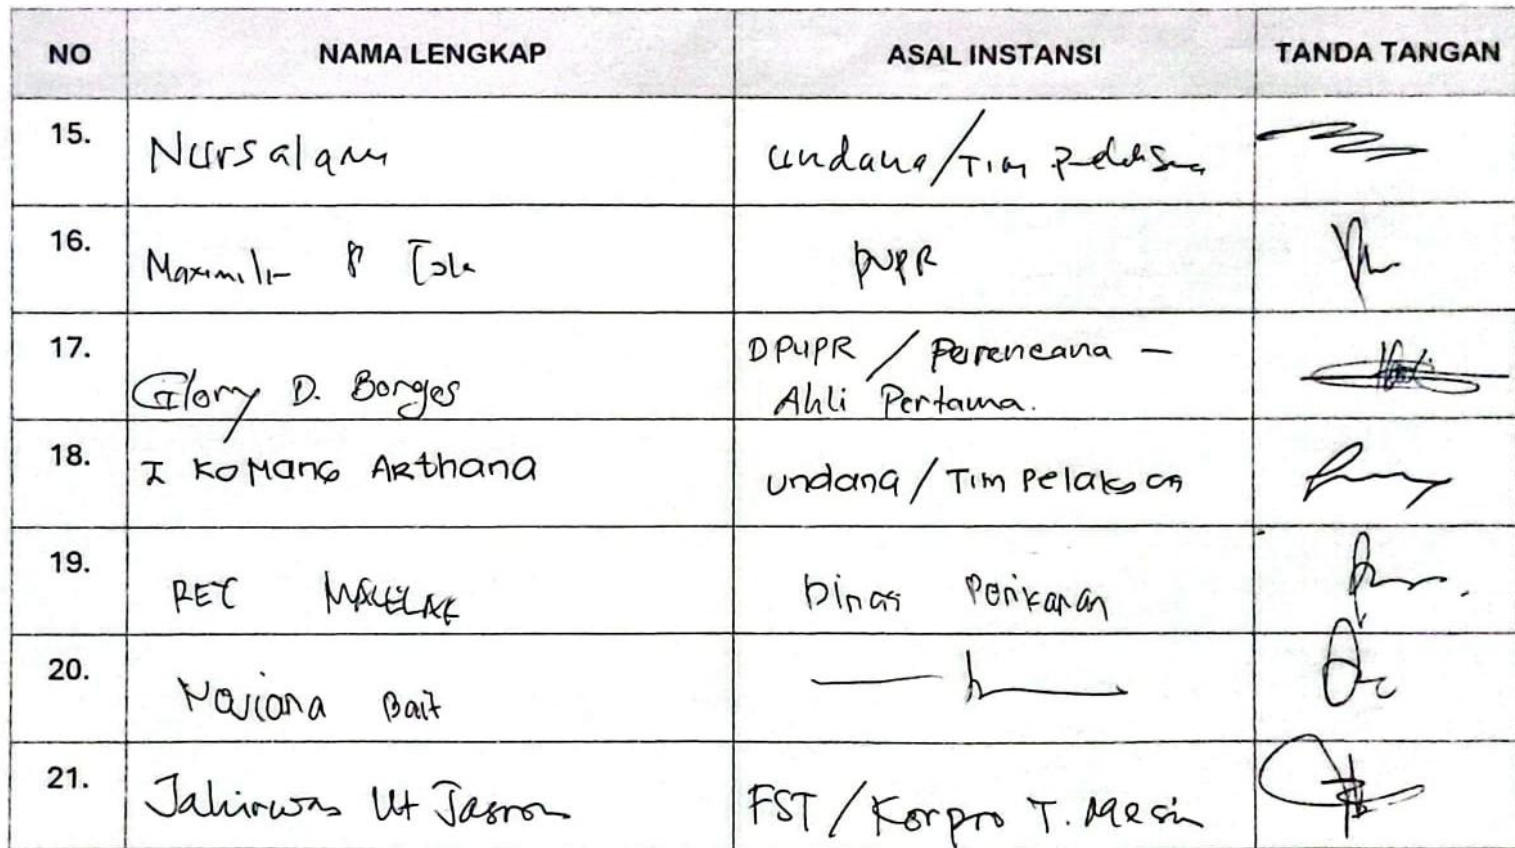 NO NAMA LENGKAP ASAL INSTANSI TANDA TANGAN
15. Nursalam Undana/Tim Pelaksana
16. P PUPR
17. Glory D. Borges DPUPR / Perencana -
Ahli Pertama.
18. I KOMANG ARthana undana/Tim Pelaksana
19. Dinas Perikanan
20. Mariana Bait
21. Jahirwan Ut Jasron FST / Korpro T. Mesin